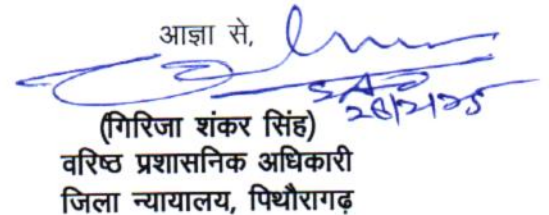 आज्ञा से,
SAO
28/2/25
(गिरिजा शंकर सिंह)
वरिष्ठ प्रशासनिक अधिकारी
जिला न्यायालय, पिथौरागढ़